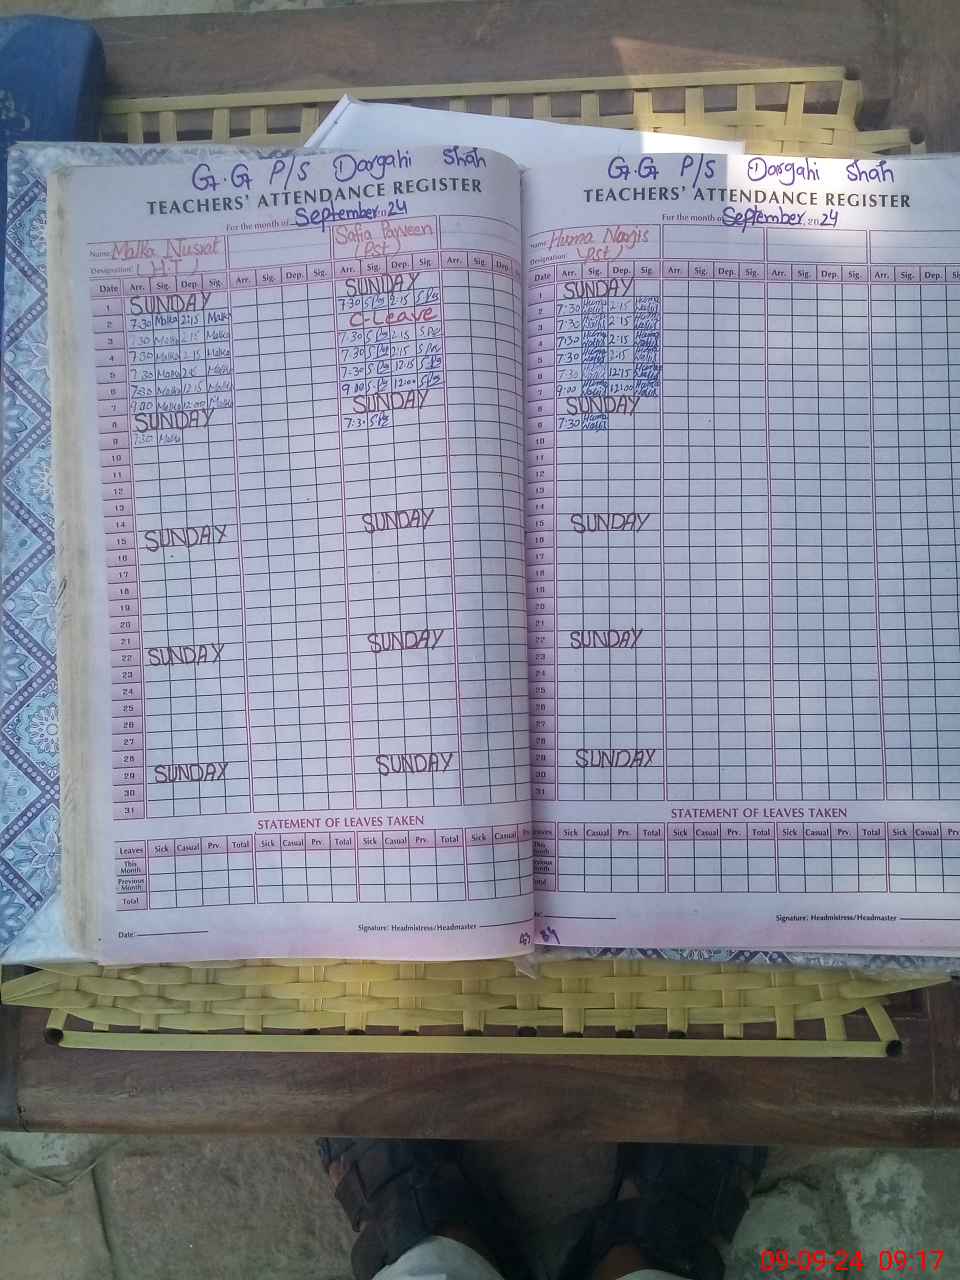 G.G P/S Dargahi Shah
TEACHERS' ATTENDANCE REGISTER
For the month of September, 2024
Name: Malka Nusrat Safia Parveen
Designation: (H.T) (Pst)
Date Arr. Sig. Dep. Sig. Arr. Sig. Dep. Sig. Arr. Sig. Dep. Sig. Arr. Sig. Dep.
1 SUNDAY SUNDAY
2 7:30 Malka 2:15 Malka 7:30 2:15
3 7:30 Malka 2:15 Malka C-Leave
4 7:30 Malka 2:15 Malka 7:30 2:15
5 7:30 Malka 2:15 Malka 7:30 2:15
6 7:30 Malka 12:15 Malka 7:30 12:15
7 9:00 Malka 12:00 Malka 9:00 12:00
8 SUNDAY SUNDAY
9 7:30 Malka 7:30
10
11
12
13
14
15 SUNDAY SUNDAY
16
17
18
19
20
21
22 SUNDAY SUNDAY
23
24
25
26
27
28
29 SUNDAY SUNDAY
30
31
STATEMENT OF LEAVES TAKEN
Leaves Sick Casual Prv. Total Sick Casual Prv. Total Sick Casual Prv. Total Sick Casual Prv.
This Month
Previous Month
Total
Date:
Signature: Headmistress/Headmaster
G.G P/S Dargahi Shah
TEACHERS' ATTENDANCE REGISTER
For the month of September, 2024
Name: Huma Narjis
Designation: (Pst)
Date Arr. Sig. Dep. Sig. Arr. Sig. Dep. Sig. Arr. Sig. Dep. Sig. Arr. Sig. Dep.
1 SUNDAY
2 7:30 Huma Narjis 2:15 Huma Narjis
3 7:30 Huma Narjis 2:15 Huma Narjis
4 7:30 Huma Narjis 2:15 Huma Narjis
5 7:30 Huma Narjis 2:15 Huma Narjis
6 7:30 Huma Narjis 12:15 Huma Narjis
7 9:00 Huma Narjis 12:00 Huma Narjis
8 SUNDAY
9 7:30 Huma Narjis
10
11
12
13
14
15 SUNDAY
16
17
18
19
20
21
22 SUNDAY
23
24
25
26
27
28
29 SUNDAY
30
31
STATEMENT OF LEAVES TAKEN
Leaves Sick Casual Prv. Total Sick Casual Prv. Total Sick Casual Prv. Total Sick Casual
This Month
Previous Month
Total
Signature: Headmistress/Headmaster
84
09-09-24 09:17